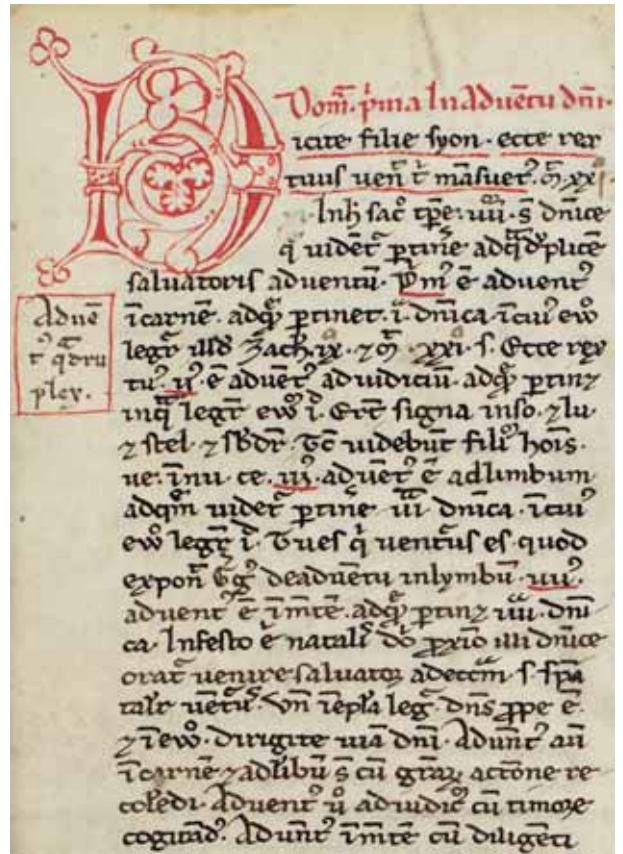 Dom̄. p̾ma In Aduētu dn̄i.
Dicite filie syon. ecce rex
tuus ven̄ t̾ māsuet⁹. M̄ xxi.
In h̾ sac̾ tp̄e. iiii. s̄ dn̄ice
q̄ uident̾ ꝑtinē ad
saluatoris aduentū. P̾m⁹ ē aduent⁹
ī carnē. ad ꝑtinet. i. dn̄ica. ī cui⁹ ew̾
legit̾ ill̾d Zach. ix. ⁊ M̄. xxi. s. Ecce rex
tu⁹. ii⁹. ē aduēt⁹ ad iudiciū. ad ꝑtinꝫ
in q̄ legit̾ ew̾ i. Er̄t signa in so. ⁊ lu.
⁊ stel. ⁊ Tc̄ uidebūt filiū hōis.
ue. ī nu. ce. iii⁹. aduēt⁹ ē ad limbum
ad quā uidet̾ ꝑtinē iii dn̄ica. ī cui⁹
ew̾ legit̾ i. Tu es q̾ uentur⁹ es. quod
expon̄ G̾g⁹ de aduētu in lymbū. iiii⁹.
aduent⁹ ē ī mētē. ad ꝑtinꝫ iiii. dn̄i
ca. In festo ē natali illi dn̄ice
orat̾ uenire saluatoꝝ ad s.
uēt̾us. Vn̄ ī ep̄la leg̾. dn̄s ꝓpe ē.
⁊ ī ew̾. dirigite uiā dn̄i. Adūnt⁹ aū
ī carnē ⁊ ad lībū s̄ cū gr̄aꝝ actōne re
colēdi. Aduent⁹ u̾ ad iudic̾ cū timore
cogitād⁹. Adūnt⁹ ī mētē cū diligēti
Aduē
t⁹ q̄dru
plex.